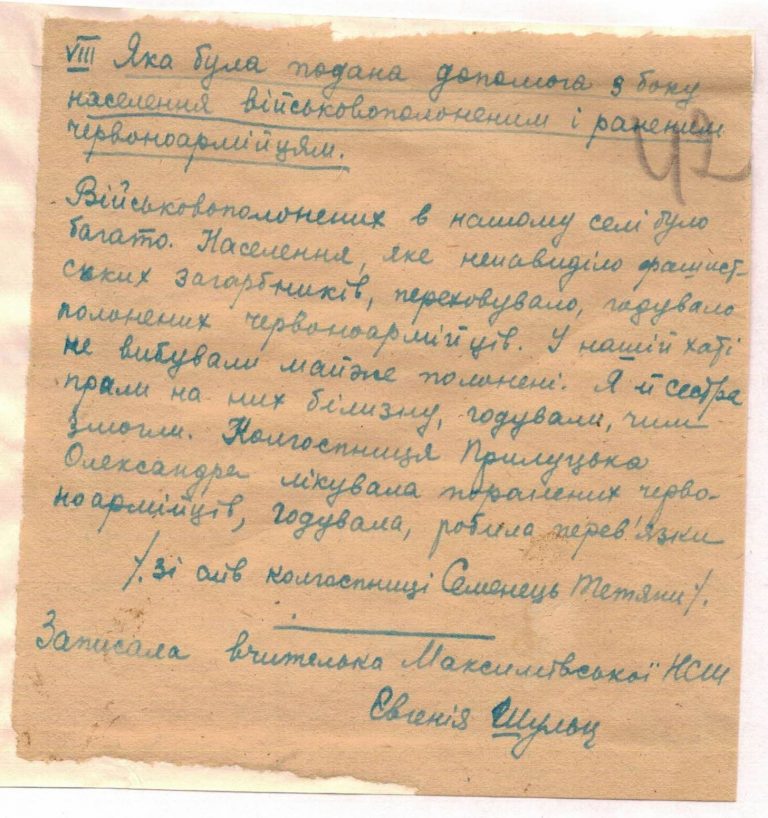 VIII Яка була подана допомога з боку
населення військовополоненим і раненим
червоноармійцям.
42
Військовополонених в нашому селі було
багато. Населення, яке ненавиділо фашист-
ських загарбників, переховувало, годувало
полонених червоноармійців. У нашій хаті
не вибували майже полонені. Я й сестра
прали на них білизну, годували, чим
змогли. Колгоспниця Прилуцька
Олександра лікувала поранених черво-
ноармійців, годувала, робила перев'язки
/. зі слів колгоспниці Семенець Тетяни /.
Записала вчителька Максиміївської НСШ
Євгенія Шульц